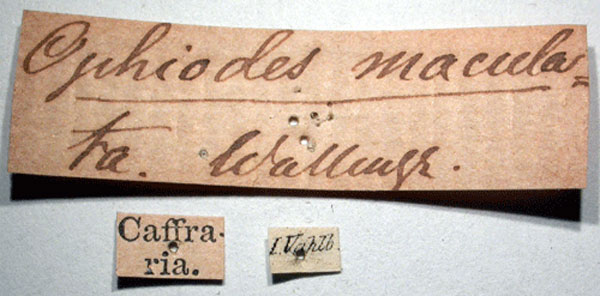 Ophiodes macula-
ta. Wallengr.
Caffra-
ria.
J. Wahlb.